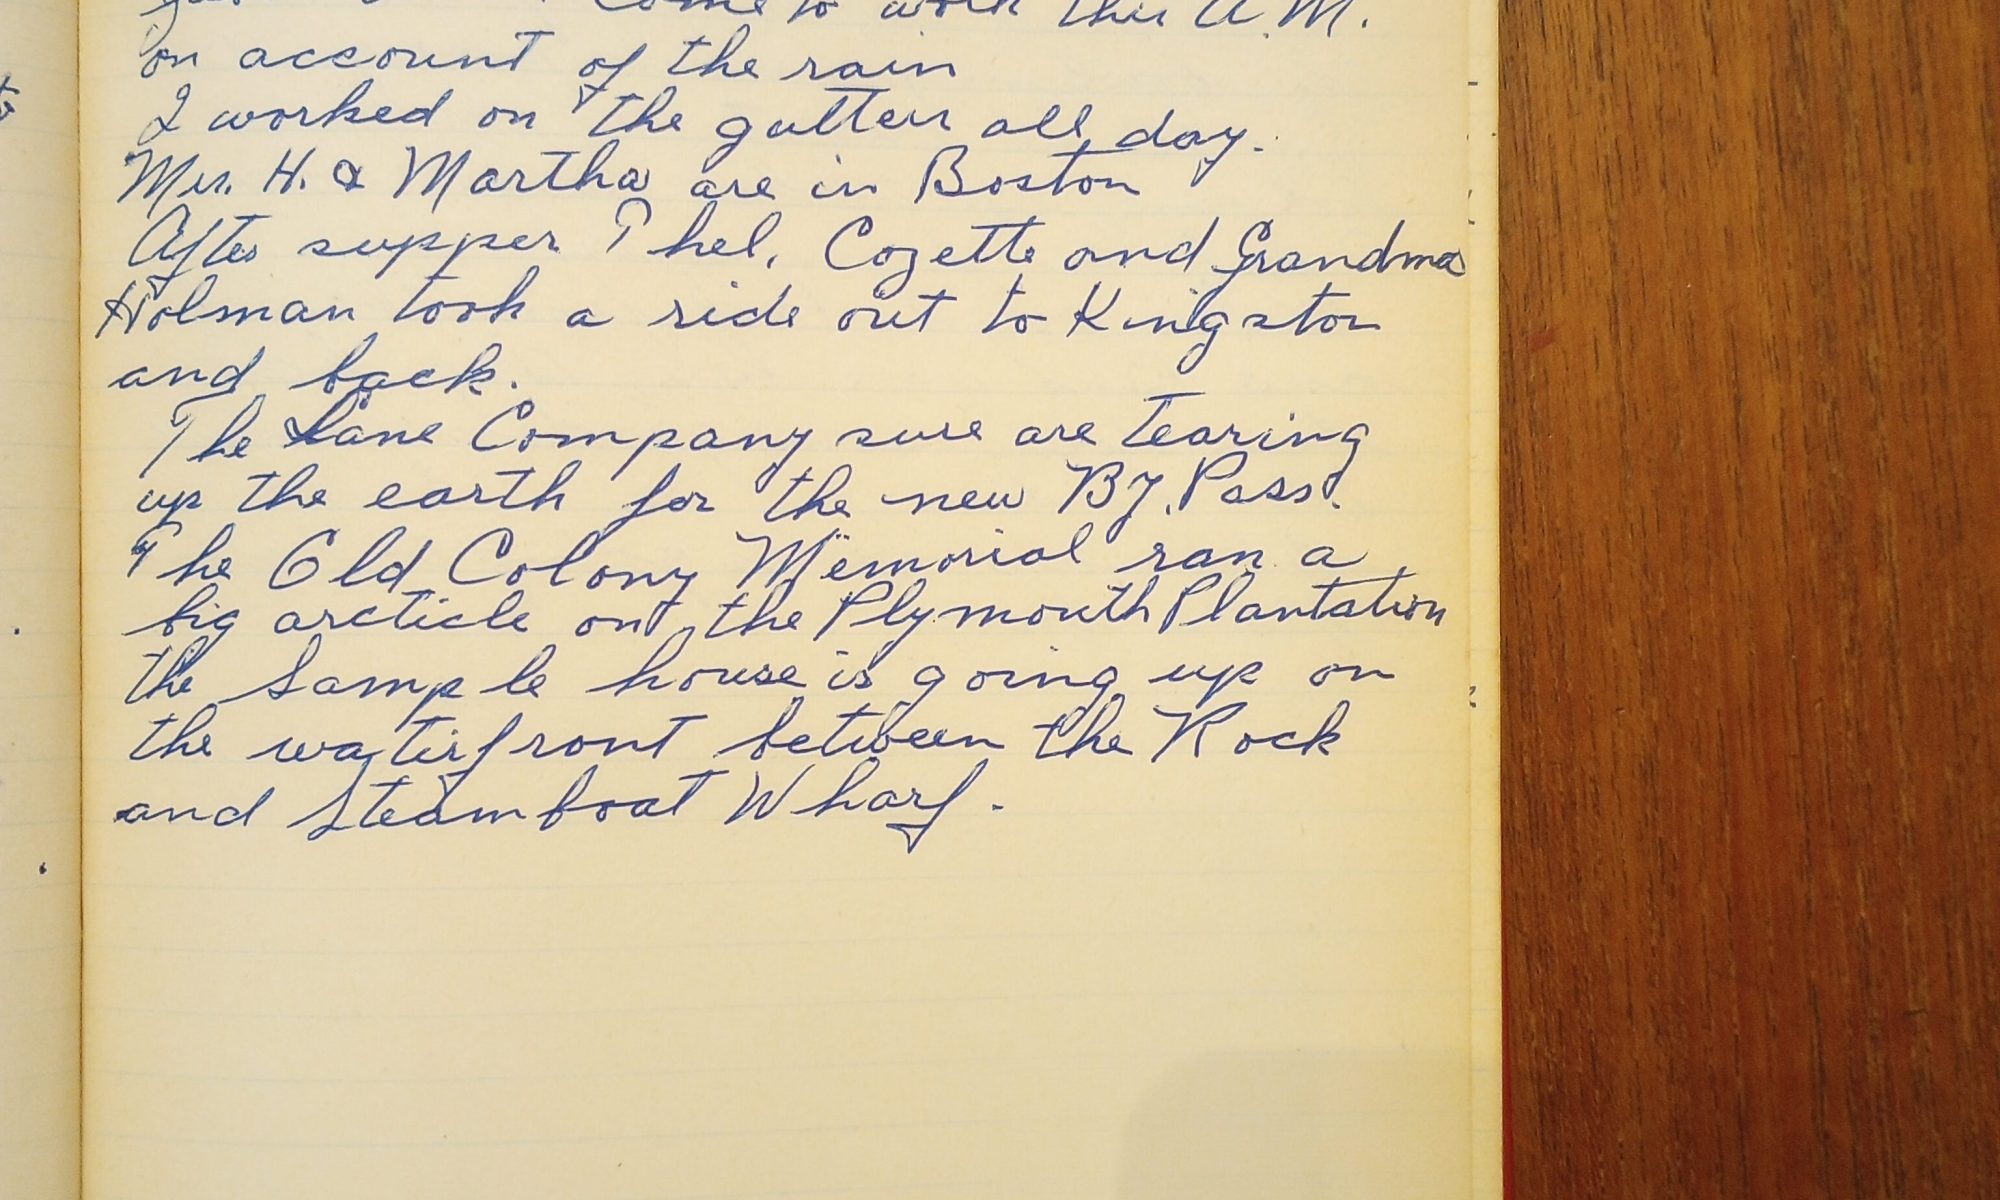 come to work this A.M.
on account of the rain
I worked on the gutters all day.
Mrs. H. & Martha are in Boston
After supper Thel, Cozette and Grandma
Holman took a ride out to Kingston
and back.
The Lane Company sure are tearing
up the earth for the new By.Pass.
The Old Colony Memorial ran a
big arcticle on the Plymouth Plantation
the sample house is going up on
the waterfront between the Rock
and Steamboat Wharf.